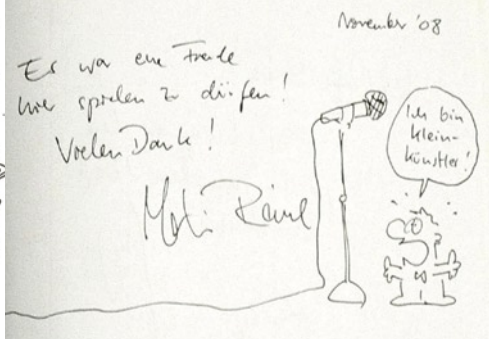 November '08
Es war eine Freude
hier spielen zu dürfen!
Vielen Dank!
Ich bin
Klein-
künstler!